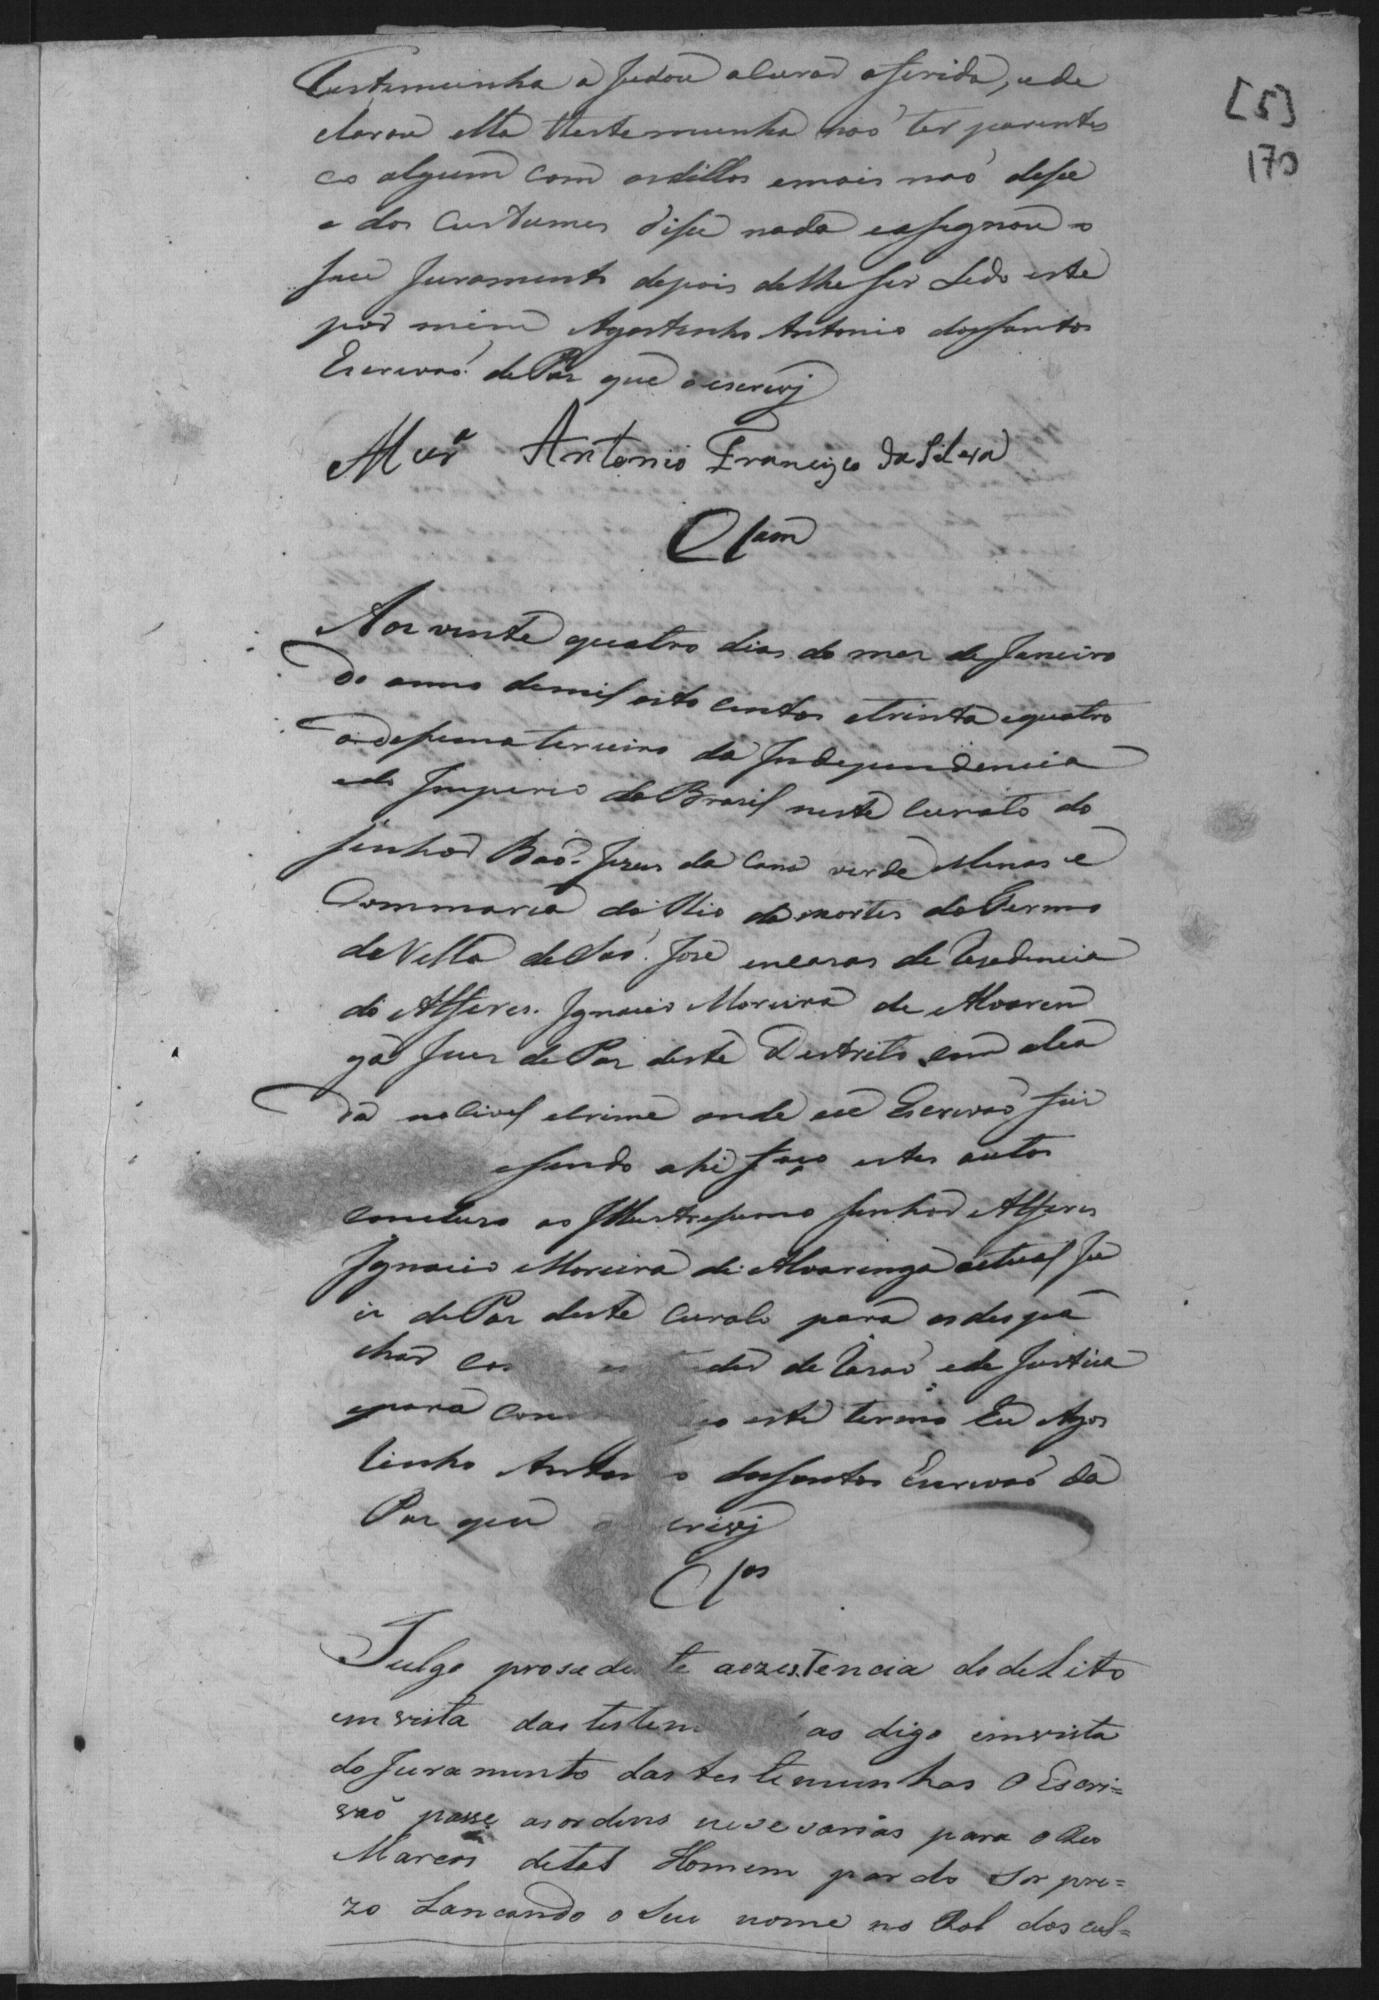 [5]
170
Testemunha a Judou a curar aferida, ede
clarou ella testemunha naó ter parentes
co algum com and elles emais naó dise
e dos custumes dise nada easignou o
seu Juramento depois delhe ser Lido este
por mim Agostinho Antonio dos Santos
Escrivaó de Paz que o escrevj
Mur.ª Antonio Francisco da Silva
Clsam
Aos vinte quatro dias do mes de Janeiro
do anno demil oito centos etrinta equatro
desimaterceiro da Independencia
edo Imperio do Brasil neste Curato do
Senhor Bao. Jezus da Cana verde Minas e
Commarca do Rio das mortes do Termo
da Villa de Saó José em casas de Resedencia
do Alferes Ignacio Moreira de Alvaren
ga Juis de Paz deste Destrito com alsa
da no Civel eCrime onde eu Escrivaó fui
esendo ahi faço estes autos
concluzo ao Illustresimo Senhor Alferes
Ignacio Moreira de Alvarenga actual Ju
is de Paz deste Curato para os despa
char de Razaó ede Justica
epara este termo Eu Agos
tinho Antonio dos Santos Escrivaó da
Paz que escrevj
Clos
Julgo prosedente aezestencia do deLito
em vista das testemunhas digo emvista
do Juramento das testemunhas o Escri=
vaõ passe as ordens nesesarias para o Reo
Marcos detal Homem pardo ser pre=
zo Lancando o seu nome no Rol dos cul=